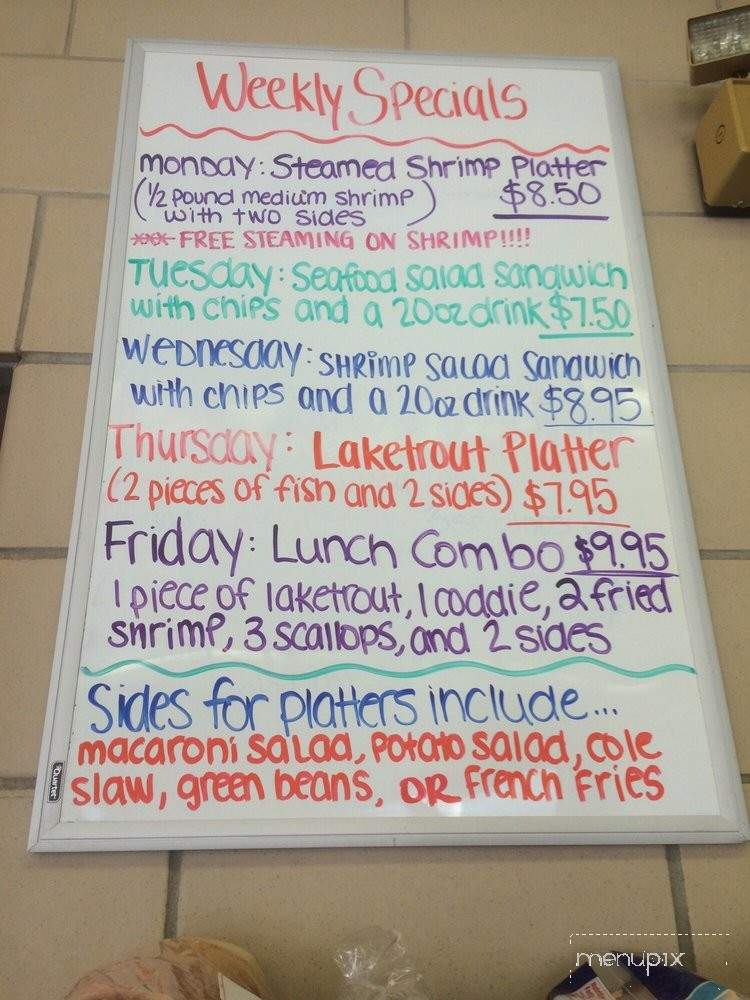 Weekly Specials
Monday: Steamed Shrimp Platter
(1/2 pound medium shrimp
with two sides) $8.50
*** FREE STEAMING ON SHRIMP!!!!
Tuesday: Seafood Salad Sandwich
with chips and a 20oz drink $7.50
Wednesday: Shrimp Salad Sandwich
with chips and a 20oz drink $8.95
Thursday: Laketrout Platter
(2 pieces of fish and 2 sides) $7.95
Friday: Lunch Combo $9.95
1 piece of laketrout, 1 coddie, 2 fried
shrimp, 3 scallops, and 2 sides
Sides for platters include...
macaroni salad, potato salad, cole
slaw, green beans, OR French Fries
Quartet
menupix